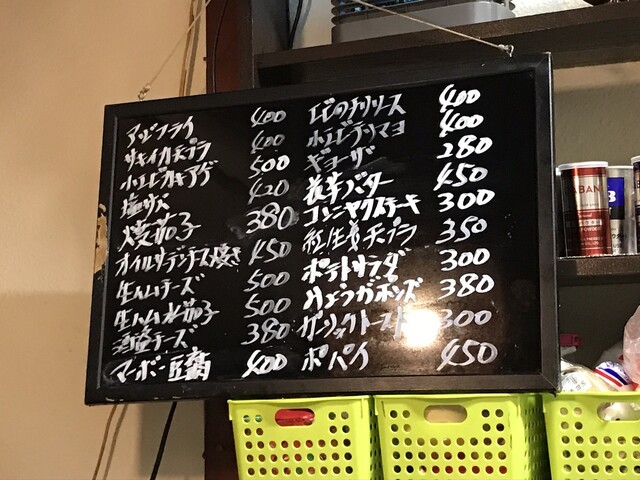 アジフライ 400
サキイカ天プラ 400
小エビカキアゲ 500
塩サバ 420
焼茄子 380
オイルサーデンチーズ焼き 450
生ハムチーズ 500
生ハム水茄子 500
酒盗チーズ 380
マーボー豆腐 400
エビのチリソース 400
小エビチリマヨ 400
ギョーザ 280
長芋バター 450
コンニャクステーキ 300
紅生姜天プラ 350
ポテトサラダ 300
みょうがポンズ 380
ガーリックトースト 300
ポパイ 450